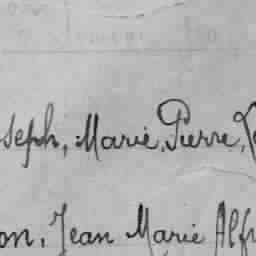 seph, Marie, Pierre,
on, Jean Marie Alfr